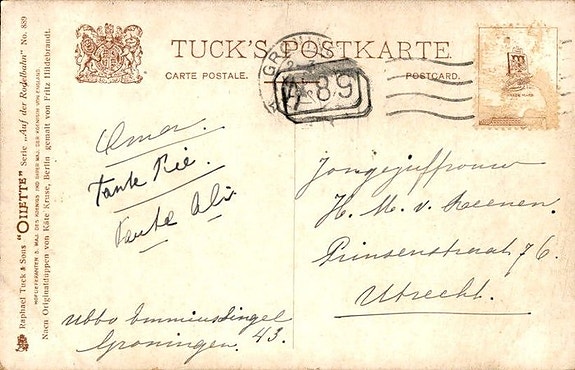 TUCK'S POSTKARTE.
CARTE POSTALE.
POSTCARD.
Raphael Tuck & Sons "OILETTE" Serie „Auf der Rodelbahn" No. 889
HOFLIEFERANTEN S. MAJ. DES KOENIGS UND IHRER MAJ. DER KOENIGIN VON ENGLAND.
Nach Originalpuppen von Käte Kruse, Berlin gemalt von Fritz Hildebrandt.
GRONIN
89
Omer.
Tante Rie.
Tante Ali
Ubbo Emmiussingel
43.
Groningen.
Jongejuffrouw
H. M. v. Reenen.
Prinsenstraat 76.
Utrecht.